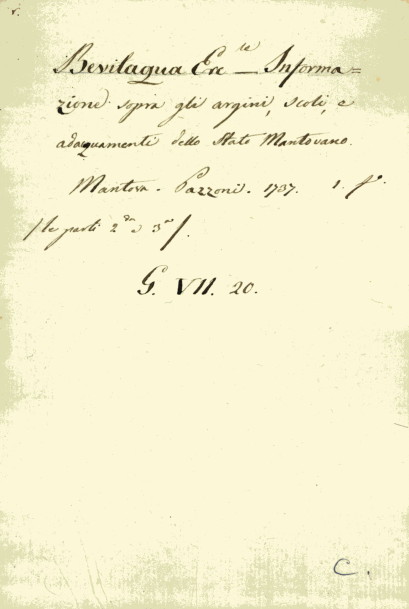 Bevilaqua Erc<sup>le</sup> — Informa=
zione sopra gli argini, scoli, e
adaquamenti dello Stato Mantovano.
Mantova - Pazzoni. 1737. 1. f°.
/ le parti 2<sup>da</sup> e 3<sup>a</sup> /.
G. VII. 20.
C.